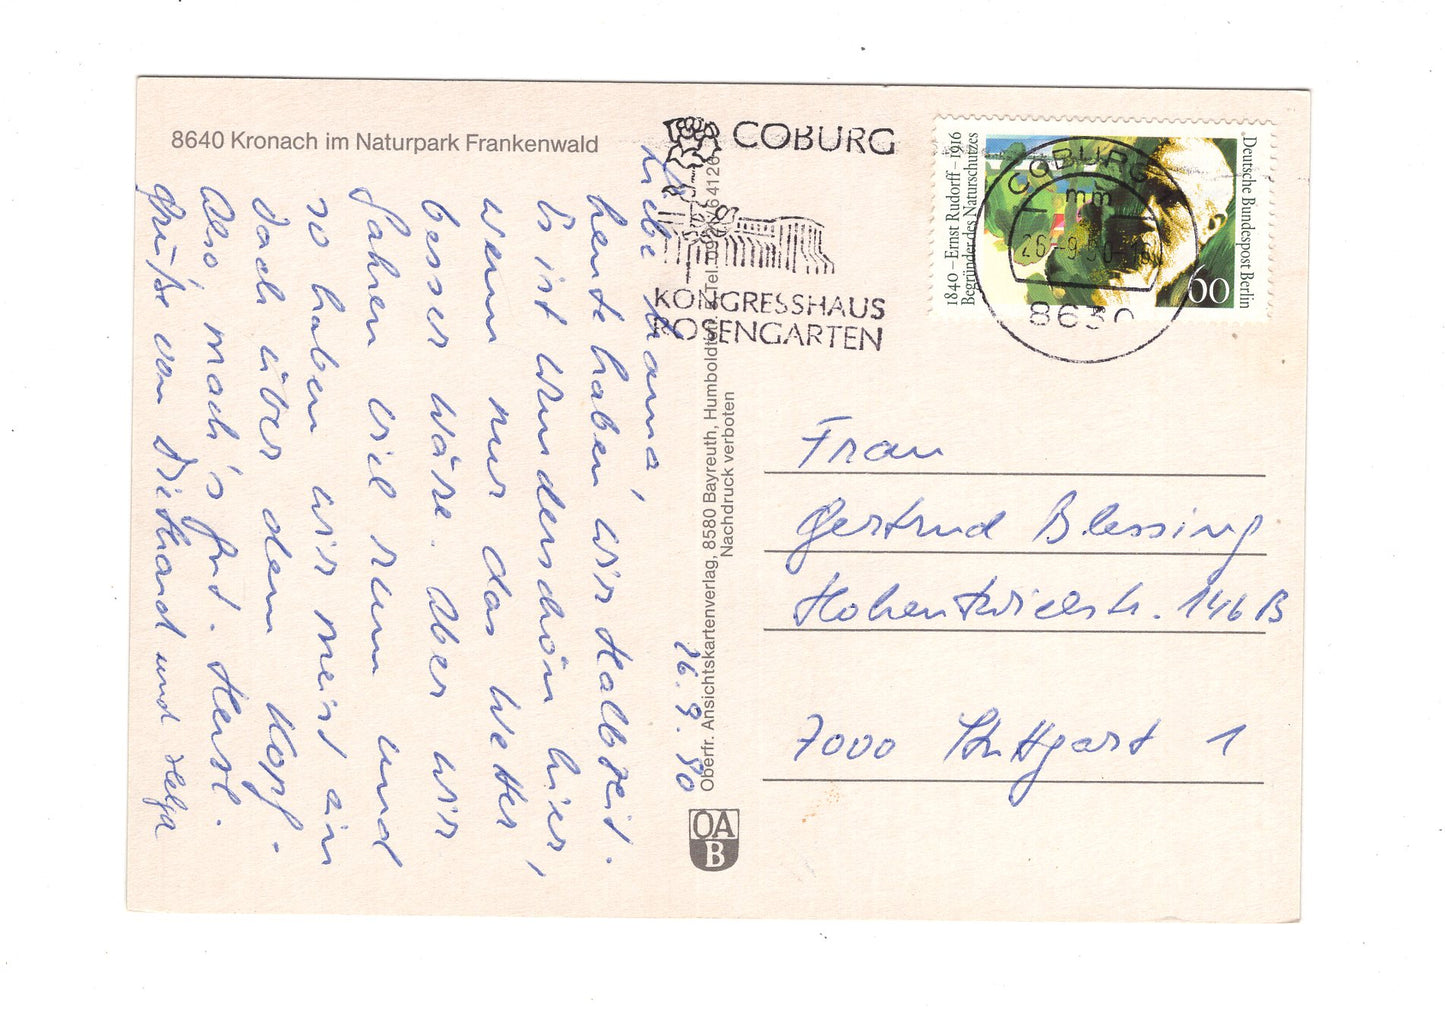 8640 Kronach im Naturpark Frankenwald
26.9.90
Liebe Mama,
heute haben wir Halbzeit.
Es ist wunderschön hier,
wenn nur das Wetter
besser wäre. Aber wir
fahren viel rum und
so haben wir meist ein
Dach über dem Kopf.
Also mach's gut. Herzl.
Grüße von Diethard und Helga
Oberfr. Ansichtskartenverlag, 8580 Bayreuth, Humboldtstr. Tel. 0921/64126
Nachdruck verboten
OA
B
COBURG
KONGRESSHAUS
ROSENGARTEN
1840 – Ernst Rudorff – 1916
Begründer des Naturschutzes
Deutsche Bundespost Berlin
60
COBURG 1
mm
26.-9.90-16
8630
Frau
Gertrud Blessing
Hohentwielstr. 146 B
7000 Stuttgart 1